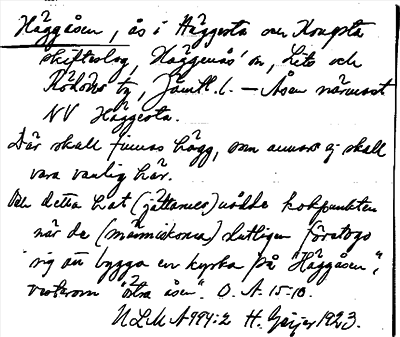 Häggåsen, ås i Häggesta och Kougsta
skifteslag, Häggenås' sn, Lits och
Rödöns tg, Jämtl. l. — Åsen närmast
NV Häggesta.
Där skall finnas hägg, som annars ej skall
vara vanlig här.
Och detta hat (jättarnes) nådde kokpunkten
när de (människorna) slutligen företogo
sig att bygga en kyrka på "Häggåsen",
västerom "östra åsen". O. A. 15-18.
ULMA 994:2 H. Geijer 1923.